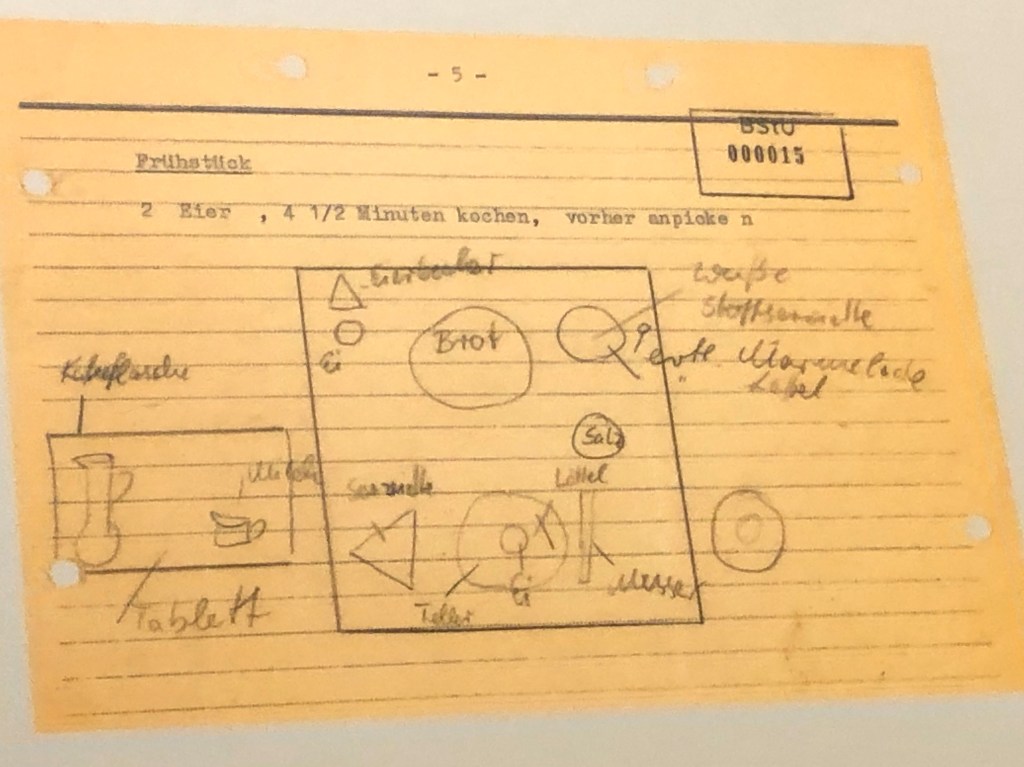 - 5 -
BStU
000015
Frühstück
2 Eier , 4 1/2 Minuten kochen, vorher anpicke n
Eierbecher
Ei
Brot
weiße
Stoffserviette
evtl. Marmelade
Löffel
Salz
Milch
Serviette
Löffel
Messer
Ei
Teller
Tablett